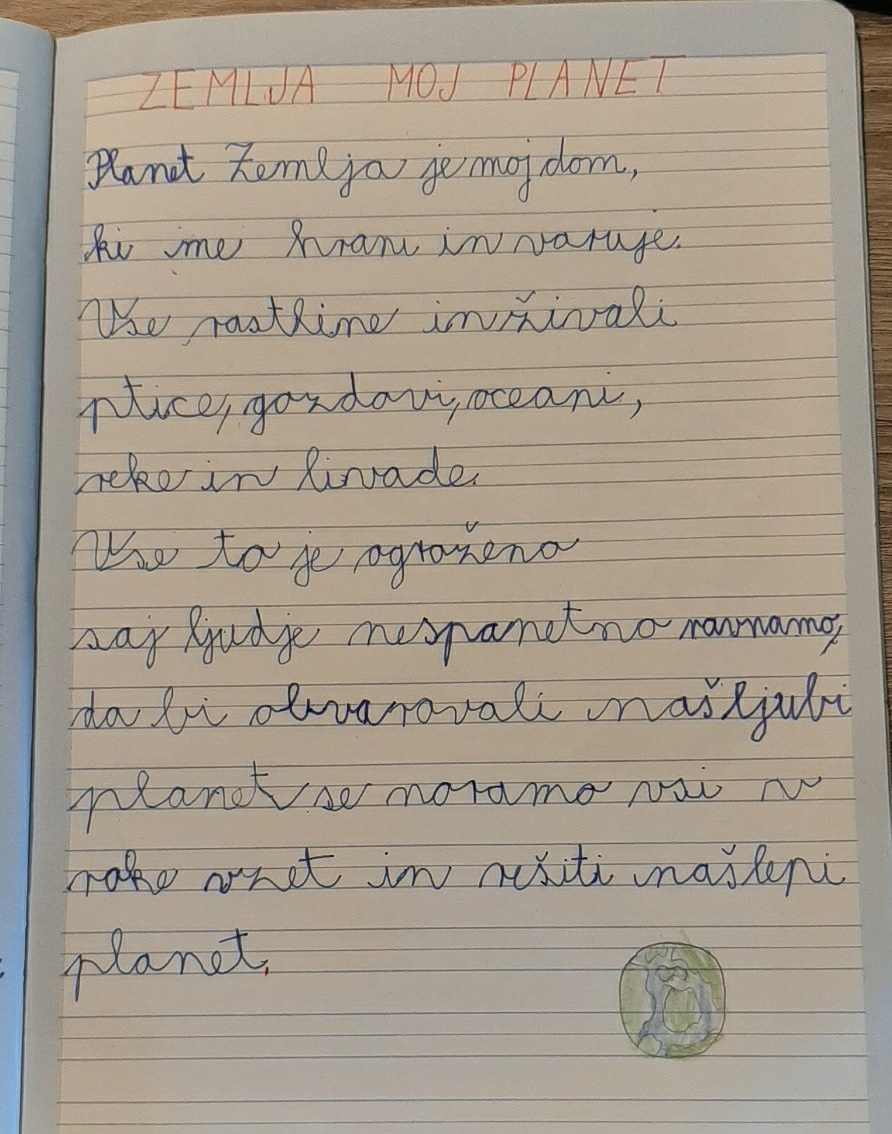 ZEMLJA MOJ PLANET
Planet Zemlja je moj dom,
ki me hrani in varuje.
Vse rastline in živali
ptice, gozdovi, oceani,
reke in livade.
Vse to je ogroženo
saj ljudje nespametno ravnamo,
da bi obvarovali naš ljubi
planet se moramo vsi v
roke vzet in rešiti naš lepi
planet.